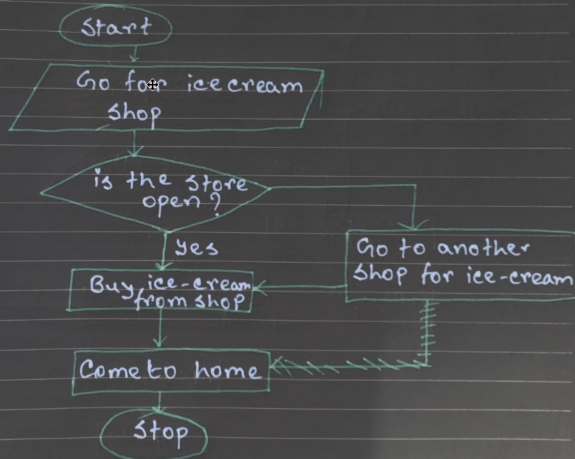 Start
Go for icecream
shop
is the store
open?
yes
Go to another
shop for ice-cream
Buy, ice-cream
from shop
Come to home
Stop